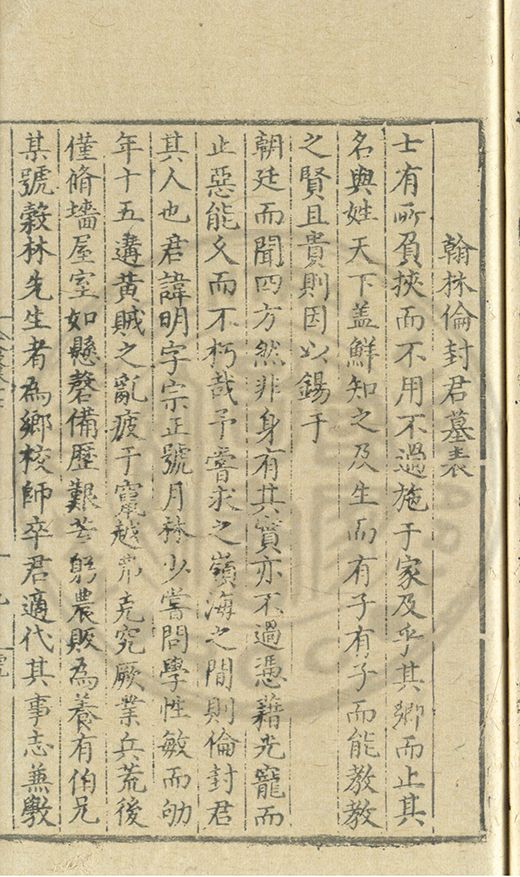 翰林倫封君墓表
士有所負挾而不用不過施于家及乎其鄉而止其
名與姓天下盖鮮知之及生而有子有子而能教教
之賢且貴則因以錫于
朝廷而聞四方然非身有其實亦不過憑藉光寵而
止惡能久而不朽哉予嘗求之嶺海之間則倫封君
其人也君諱明字宗正號月林少嘗問學性敏而劬
年十五遘黃賊之亂疲于竄越弗克究厥業兵荒後
僅脩墻屋室如懸磬備歷艱苦躬農販為養有伯兄
某號穀林先生者為鄉校師卒君適代其事志兼斆